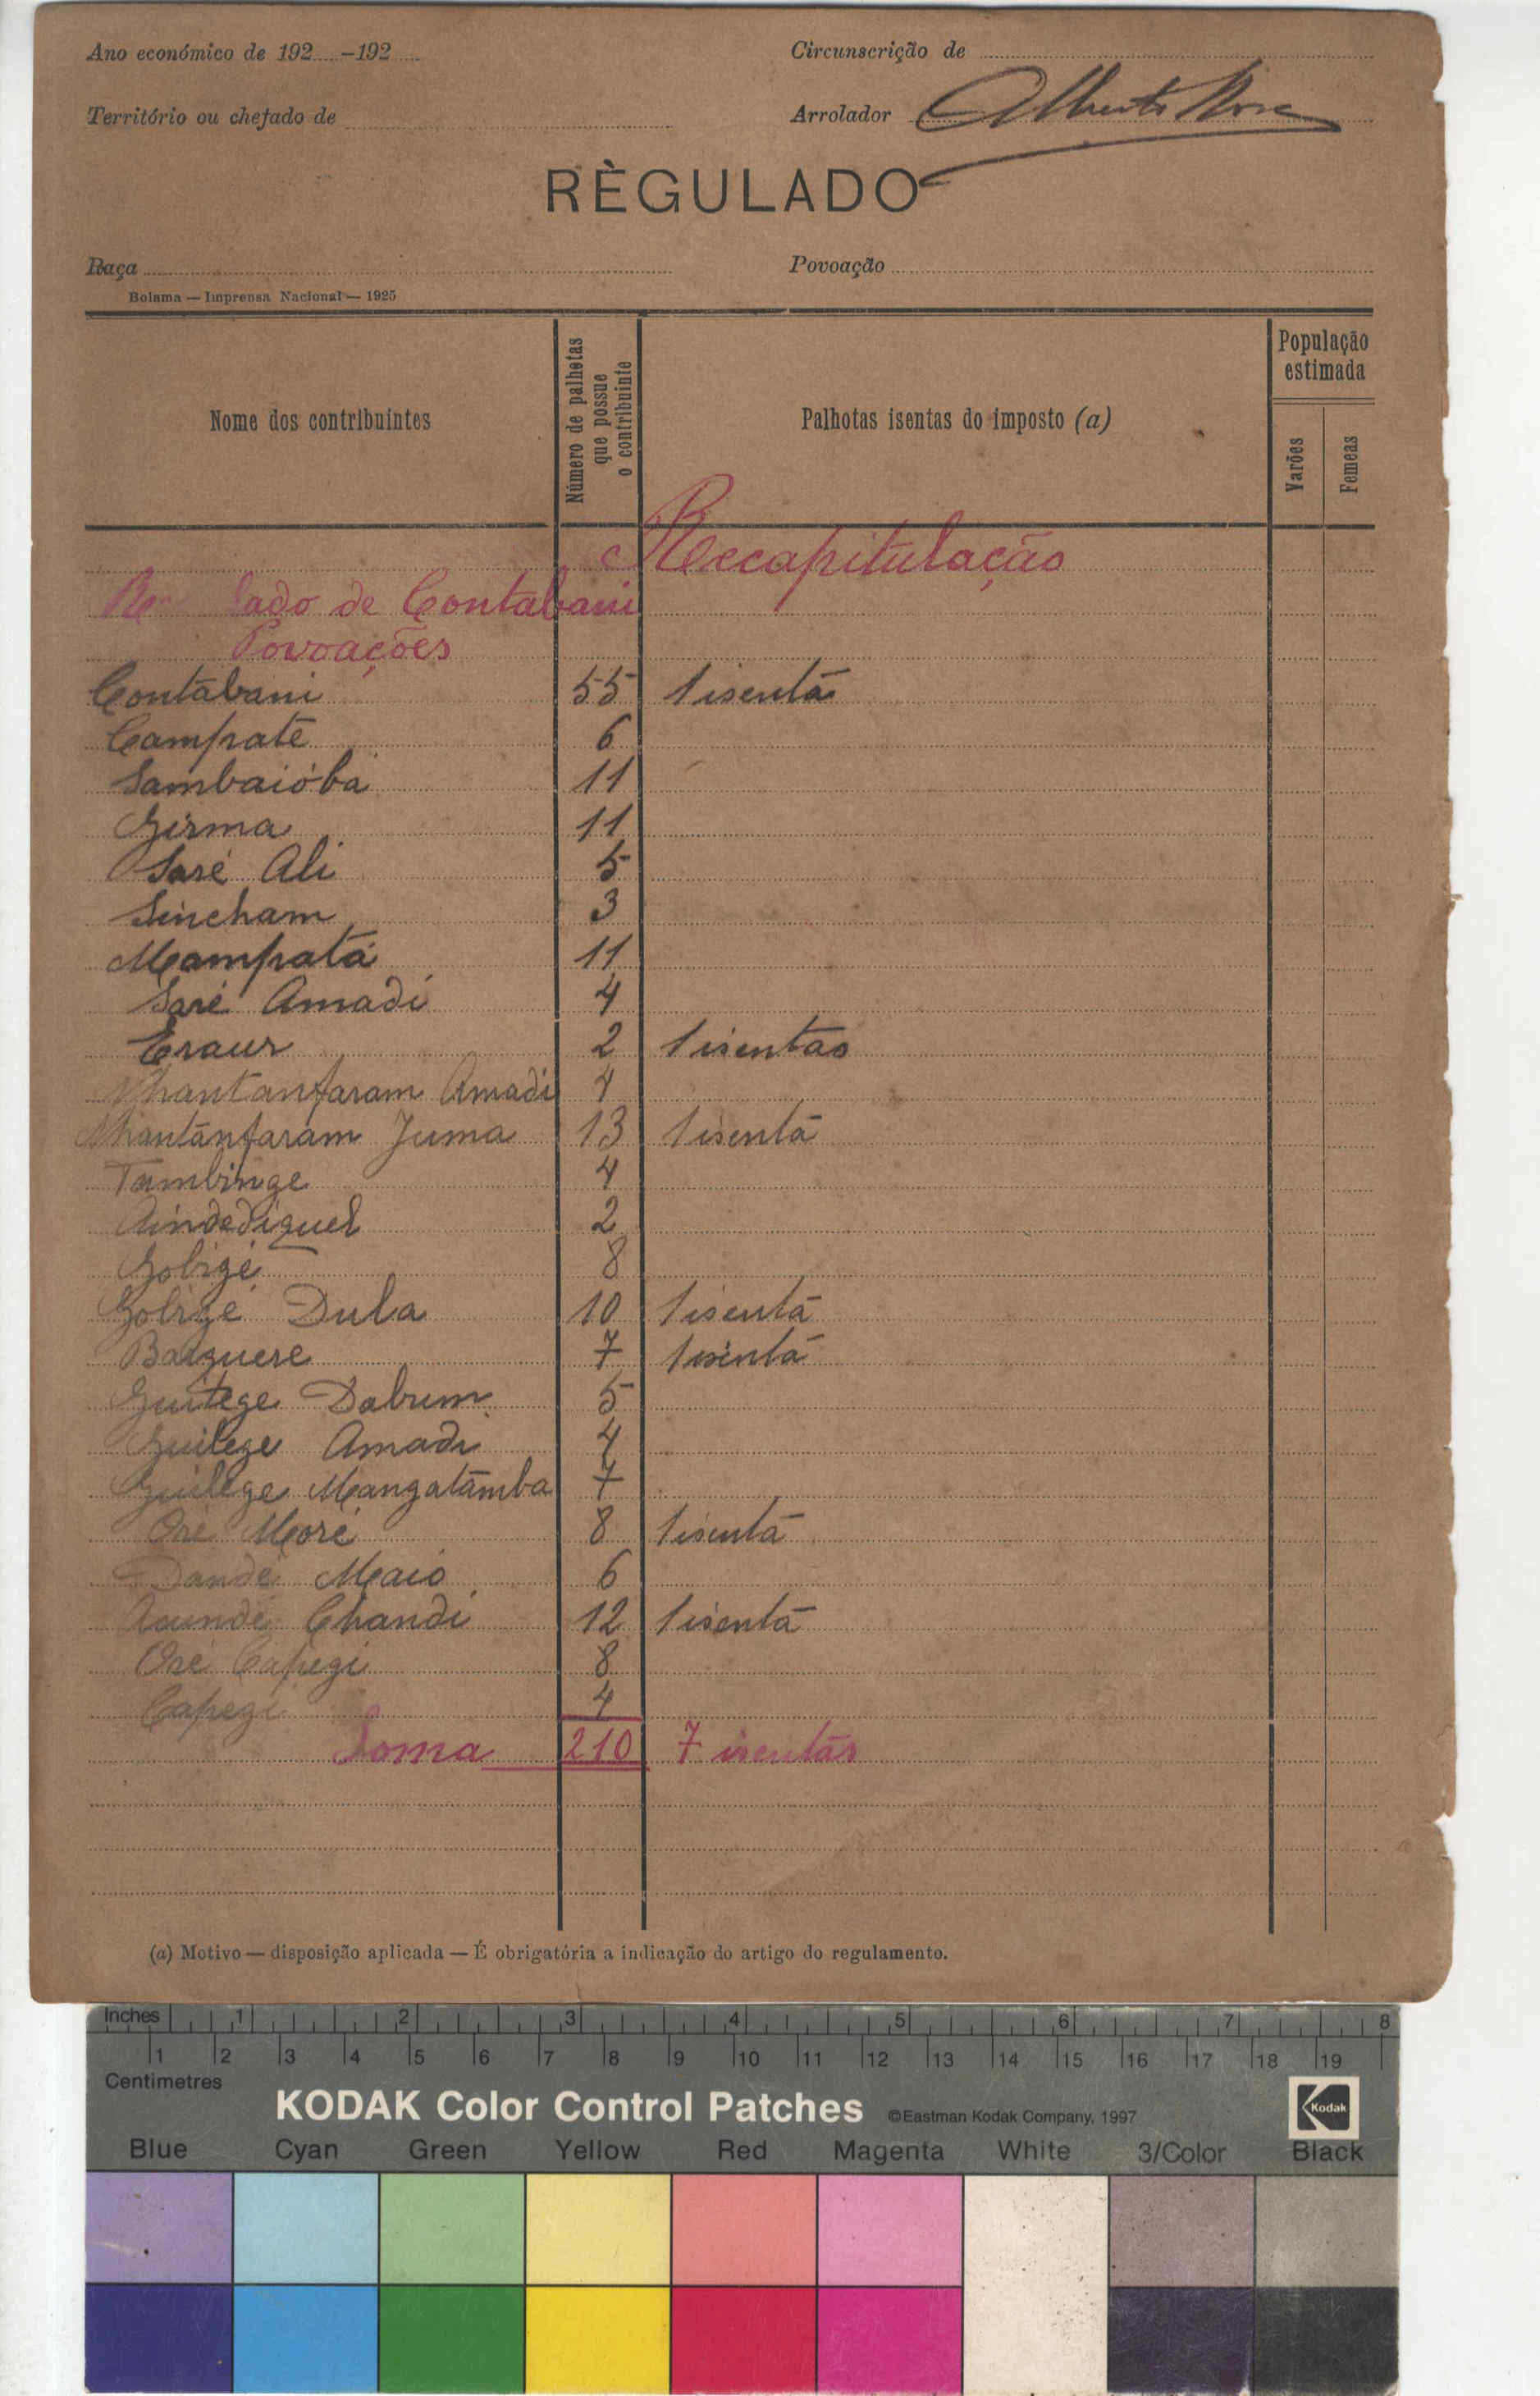 Ano económico de 192.....-192.....
Circunscrição de
Território ou chefado de
Arrolador Alberto
RÈGULADO
Raça
Povoação
Bolama — Imprensa Nacional — 1925
Nome dos contribuintes
Número de palhotas que possue o contribuinte
Palhotas isentas do imposto (a)
População estimada
Varões
Femeas
Recapitulação
lado de Contabani
Povoações
Contabani 55 1 isenta
Campate 6
Sambaióba 11
Girma 11
Saré Ali 5
Sincham 3
Mampatá 11
Saré Amadi 4
2 1 isentas
Nhantanfaram Amadi 4
Nhantanfaram Juma 13 1 isenta
Tambinge 4
2
8
Dula 10 1 isenta
7 1 isenta
Dabrum 5
Guilege Amadi 4
Guilege Mangatamba 7
Oré Moré 8 1 isenta
Dandé Maio 6
Chandi 12 1 isenta
Oré Capegi 8
Capegi 4
Soma 210 7 isentas
(a) Motivo — disposição aplicada — É obrigatória a indicação do artigo do regulamento.
Inches 1 2 3 4 5 6 7 8
1 2 3 4 5 6 7 8 9 10 11 12 13 14 15 16 17 18 19
Centimetres
KODAK Color Control Patches ©Eastman Kodak Company, 1997 Kodak
Blue Cyan Green Yellow Red Magenta White 3/Color Black